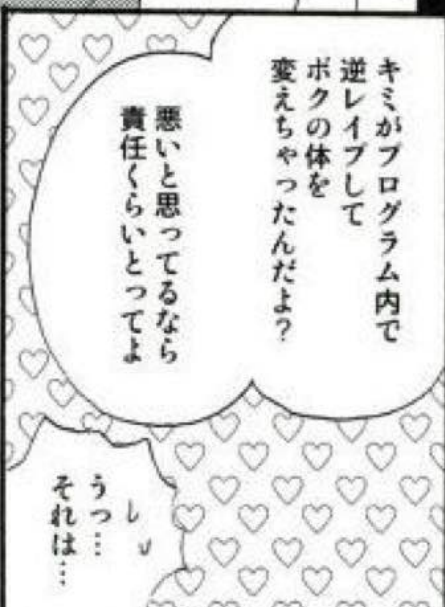 キミがプログラム内で
逆レイプして
ボクの体を
変えちゃったんだよ？
悪いと思ってるなら
責任くらいとってよ
うっ…
それは…